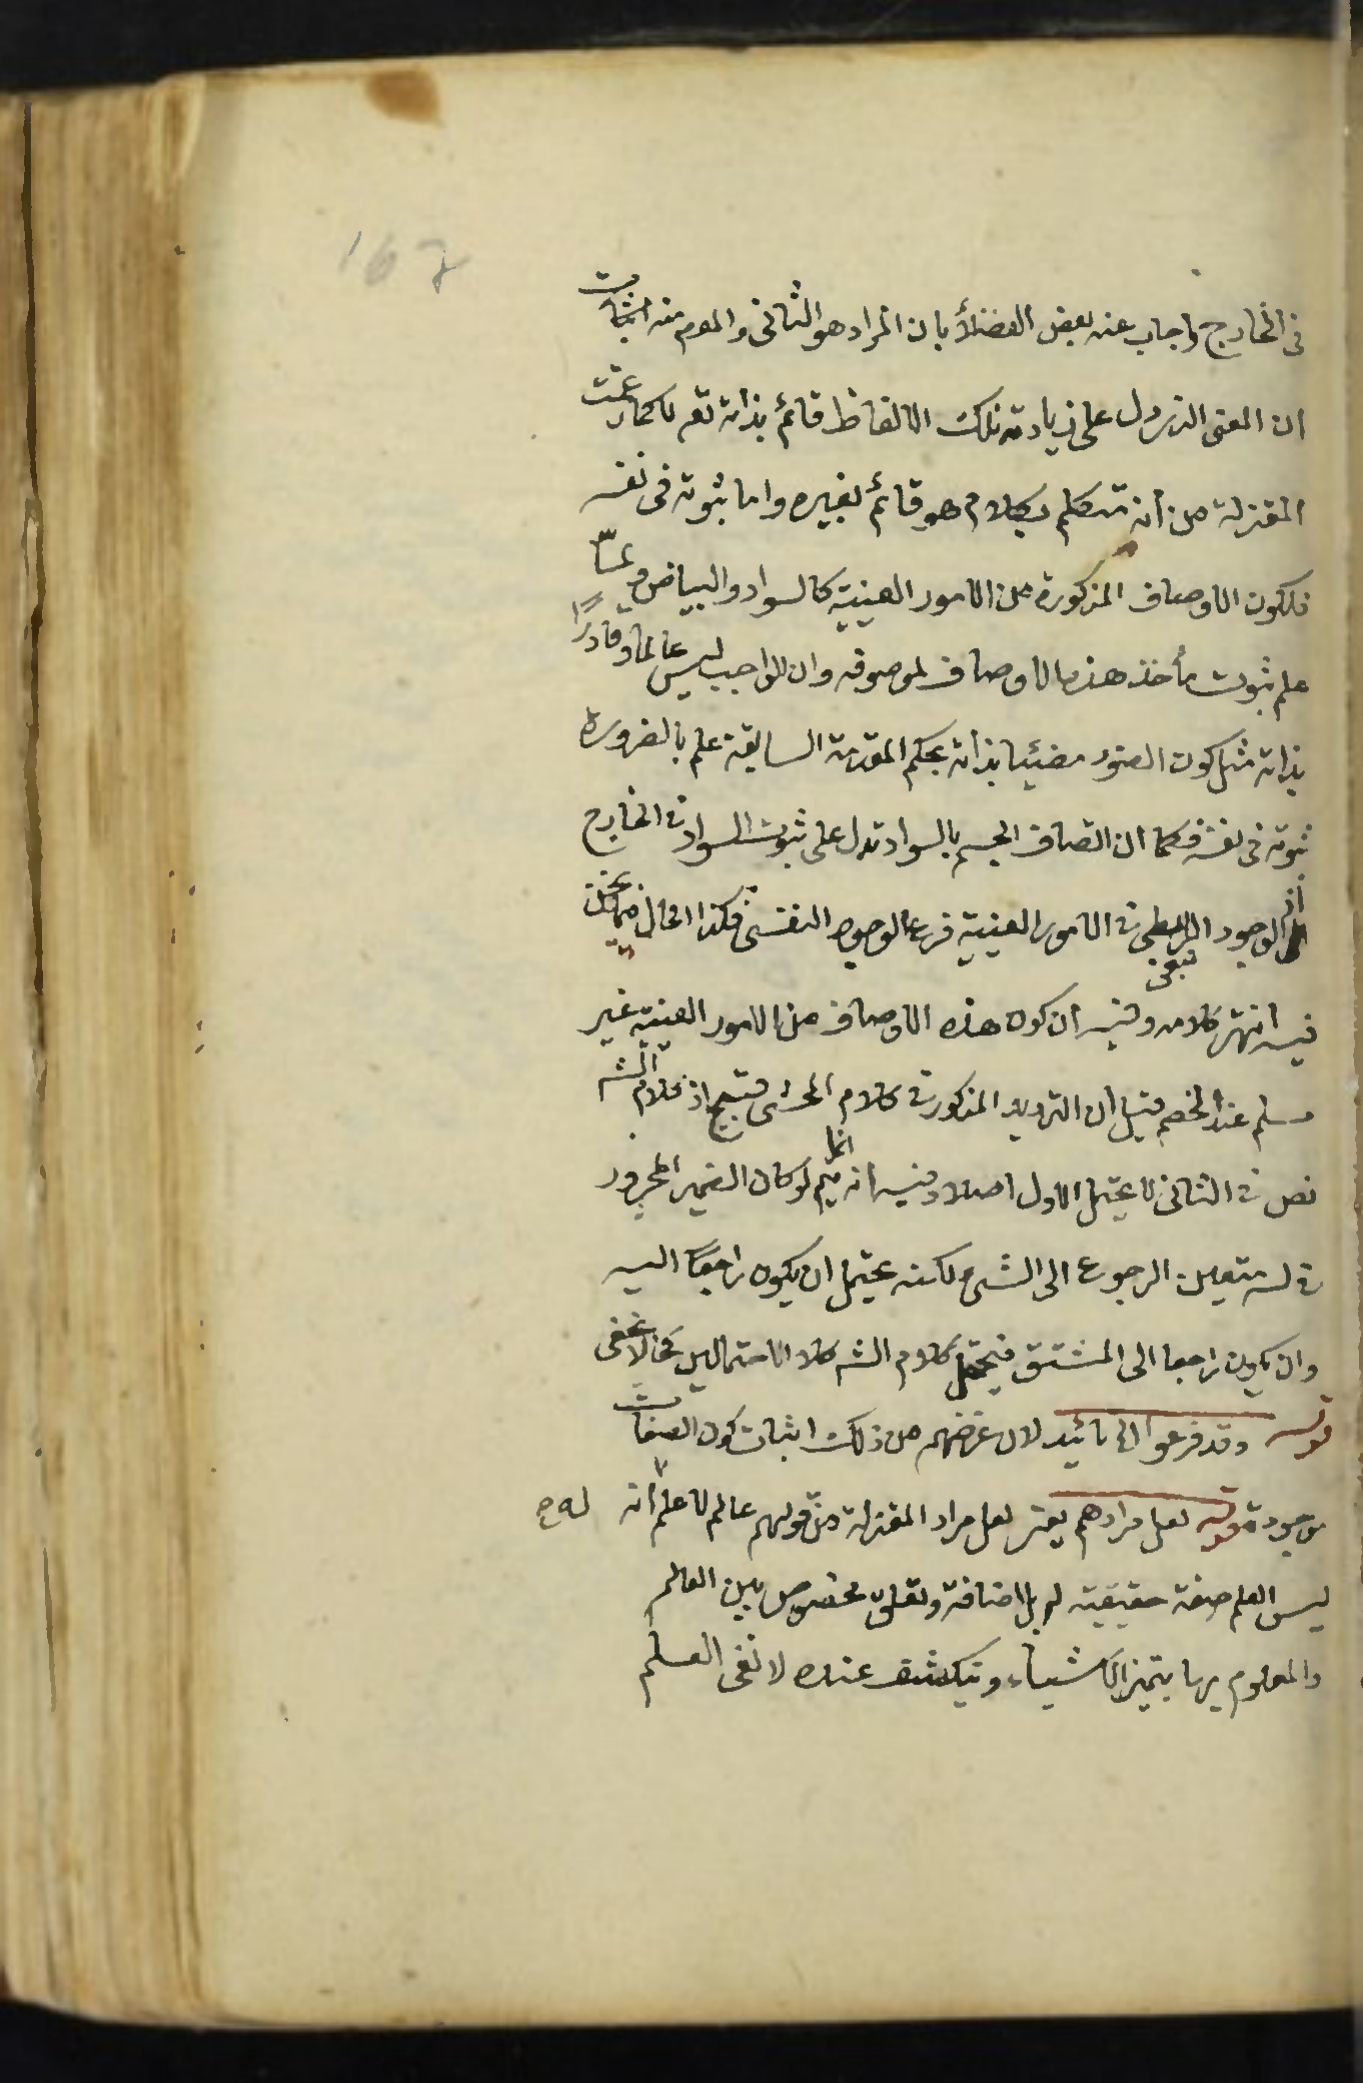 167
فى الخارج واجاب عنه بعض الفضلأ بان المراد هو الثانى والمعوم منه اثبات
ان المعنى الذى دل على زيادته تلك الالفاظ قائم بذاته تعم لا كما زعمت
المعتزلة من أنه متكلم بكلام هو قائم بغيره واما ثبوته فى نفسه
فلكون الاوصاف المذكورة من الامور العينية كالسواد والبياض ولمّا
علم ثبوت مأخذ هذه الاوصاف لموصوفه وان الواجب ليس عالما وقادرًا
بذاته مثل كون الضوء مضيئا بذاته بحكم المقدمة السابقة علم بالضرورة
ثبوته فى نفسه فكما ان اتصاف الجسم بالسواد تدل على ثبوت السواد فى الخارج
اذ الوجود الرابطى فى الامور العينية فرع الوجود النفسى فكذا الحال فيما نحن
فيه انتهى كلامه وفيه ان كون هذه الاوصاف من الامور العينية غير
مسلم عند الخصم قيل ان الترديد المذكور فى كلام المحشى قبيح اذ كلام الشه
نص فى الثانى لا يحتمل الاول اصلا وفيه انه انما يتم لو كان الضمير المجرور
فى له متعين الرجوع الى الشئ لكنه يحتمل ان يكون راجعًا اليه
وان يكون راجعا الى المشتق فيحتمل كلام الشه كلا الاحتمالين كما لا يخفى
قوله وقد فرعوا الى تائيد لان غرضهم من ذلك اثبات كون الصفات
موجودة قوله لعل مرادهم يعنى لعل مراد المعتزلة من قولهم عالم لا علم له انه
ليس العلم صفة حقيقية له بل اضافة وتعلق مخصوص بين العالم
والمعلوم بها يتميز الاشياء وينكشف عنده لا نفى العلم